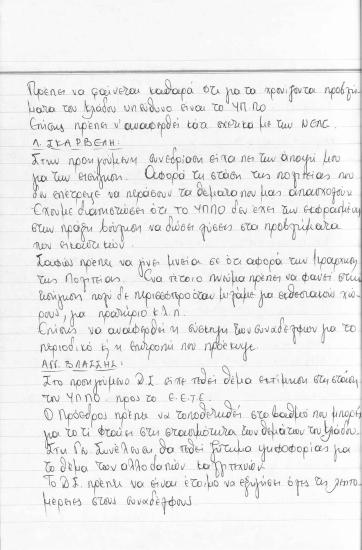 Πρέπει να φαίνεται καθαρά ότι για τα χρονίζοντα προβλή-
ματα του κλάδου υπεύθυνο είναι το ΥΠΠΟ
Επίσης πρέπει ν' αναφερθεί κάτι σχετικά με την
Λ. ΣΚΑΡΒΕΛΗ:
Στην προηγούμενη συνεδρίαση είχα πει την άποψή μου
για την εισήγηση. Αφορά τη στάση της πολιτείας που
δεν επέτρεψε να περάσουν τα θέματα που μας απασχολούν
Έχουμε διαπιστώσει ότι το ΥΠΠΟ δεν έχει την εκφρασμένη
στην πράξη βούληση να δώσει λύσεις στα προβλήματα
των εικαστικών.
Σαφώς πρέπει να γίνει μνεία σε ότι αφορά την
της Πολιτείας. Ένα τέτοιο πνεύμα πρέπει να φανεί στην
εισήγηση πολύ δε περισσότερο όταν μιλάμε για εκθεσιακούς χώ-
ρους, για πρατήριο κ.λ.π.
Επίσης να αναφερθεί η σύσκεψη των συναδέλφων για το
περιοδικό ή η επιτροπή που προέκυψε.
ΑΓΓ. ΒΛΑΣΣΗΣ:
Στο προηγούμενο Δ.Σ. είχε τεθεί θέμα εκτίμησης στη στάση
του ΥΠΠΟ προς το Ε.Ε.Τ.Ε.
Ο Πρόεδρος πρέπει να τοποθετηθεί στο βαθμό που μπορεί
για το τι φταίει στη στασιμότητα των θεμάτων του κλάδου.
Στη Γεν. Συνέλευση θα τεθεί ζήτημα ψηφοφορίας για
το θέμα των αλλοδαπών καλλιτεχνών.
Το Δ.Σ. πρέπει να είναι έτοιμο να εξηγήσει όλες τις λεπτο-
μέρειες στους συναδέλφους.